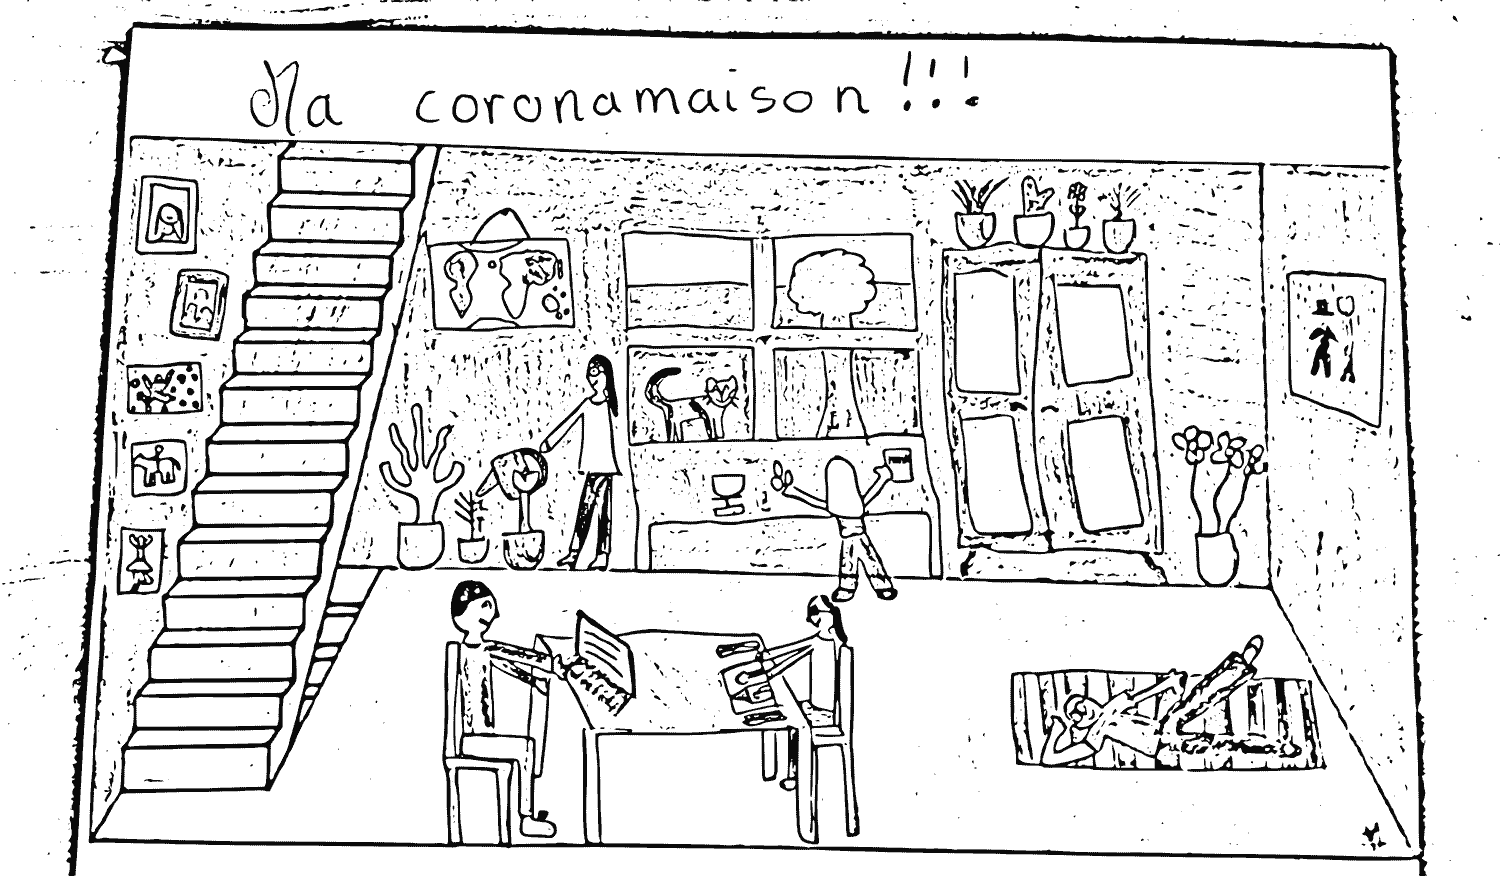 Ma coronamaison !!!